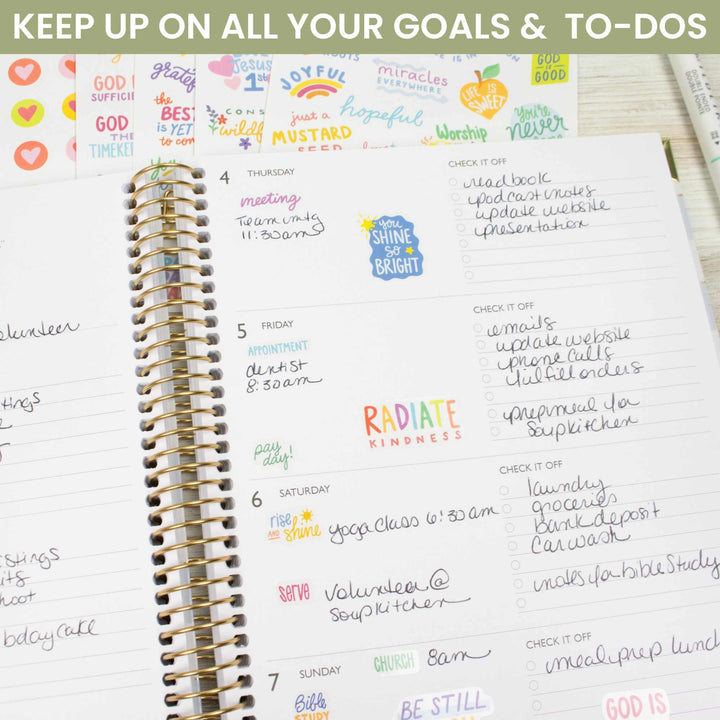 KEEP UP ON ALL YOUR GOALS & TO-DOS
GOD IS
SUFFICIE
GOD
THE
TIMEKEEP
grateful
the
BEST
is YET
to come
JESUS
1st
CONS
wildf
JOYFUL
just a
MUSTARD
SEED
hopeful
miracles
EVERYWHERE
Worship
LIFE IS
SWEET
GOD
is
GOOD
You're
never
4 THURSDAY
meeting
Team mtg
11:30am
you
SHINE
SO
BRIGHT
CHECK IT OFF
read book
podcast notes
update website
presentation
5 FRIDAY
APPOINTMENT
dentist
8:30am
RADIATE
KINDNESS
pay
day!
CHECK IT OFF
emails
update website
phone calls
fulfill orders
prep meal for
Soup kitchen
6 SATURDAY
rise
AND shine
yoga class 6:30am
serve
volunteer @
Soup kitchen
CHECK IT OFF
laundry
groceries
bank deposit
car wash
notes for bible Study
7 SUNDAY
CHURCH 8am
Bible
STUDY
BE STILL
CHECK IT OFF
meal prep lunch
GOD IS
olunteer
stings
istings
its
hoot
bday cake